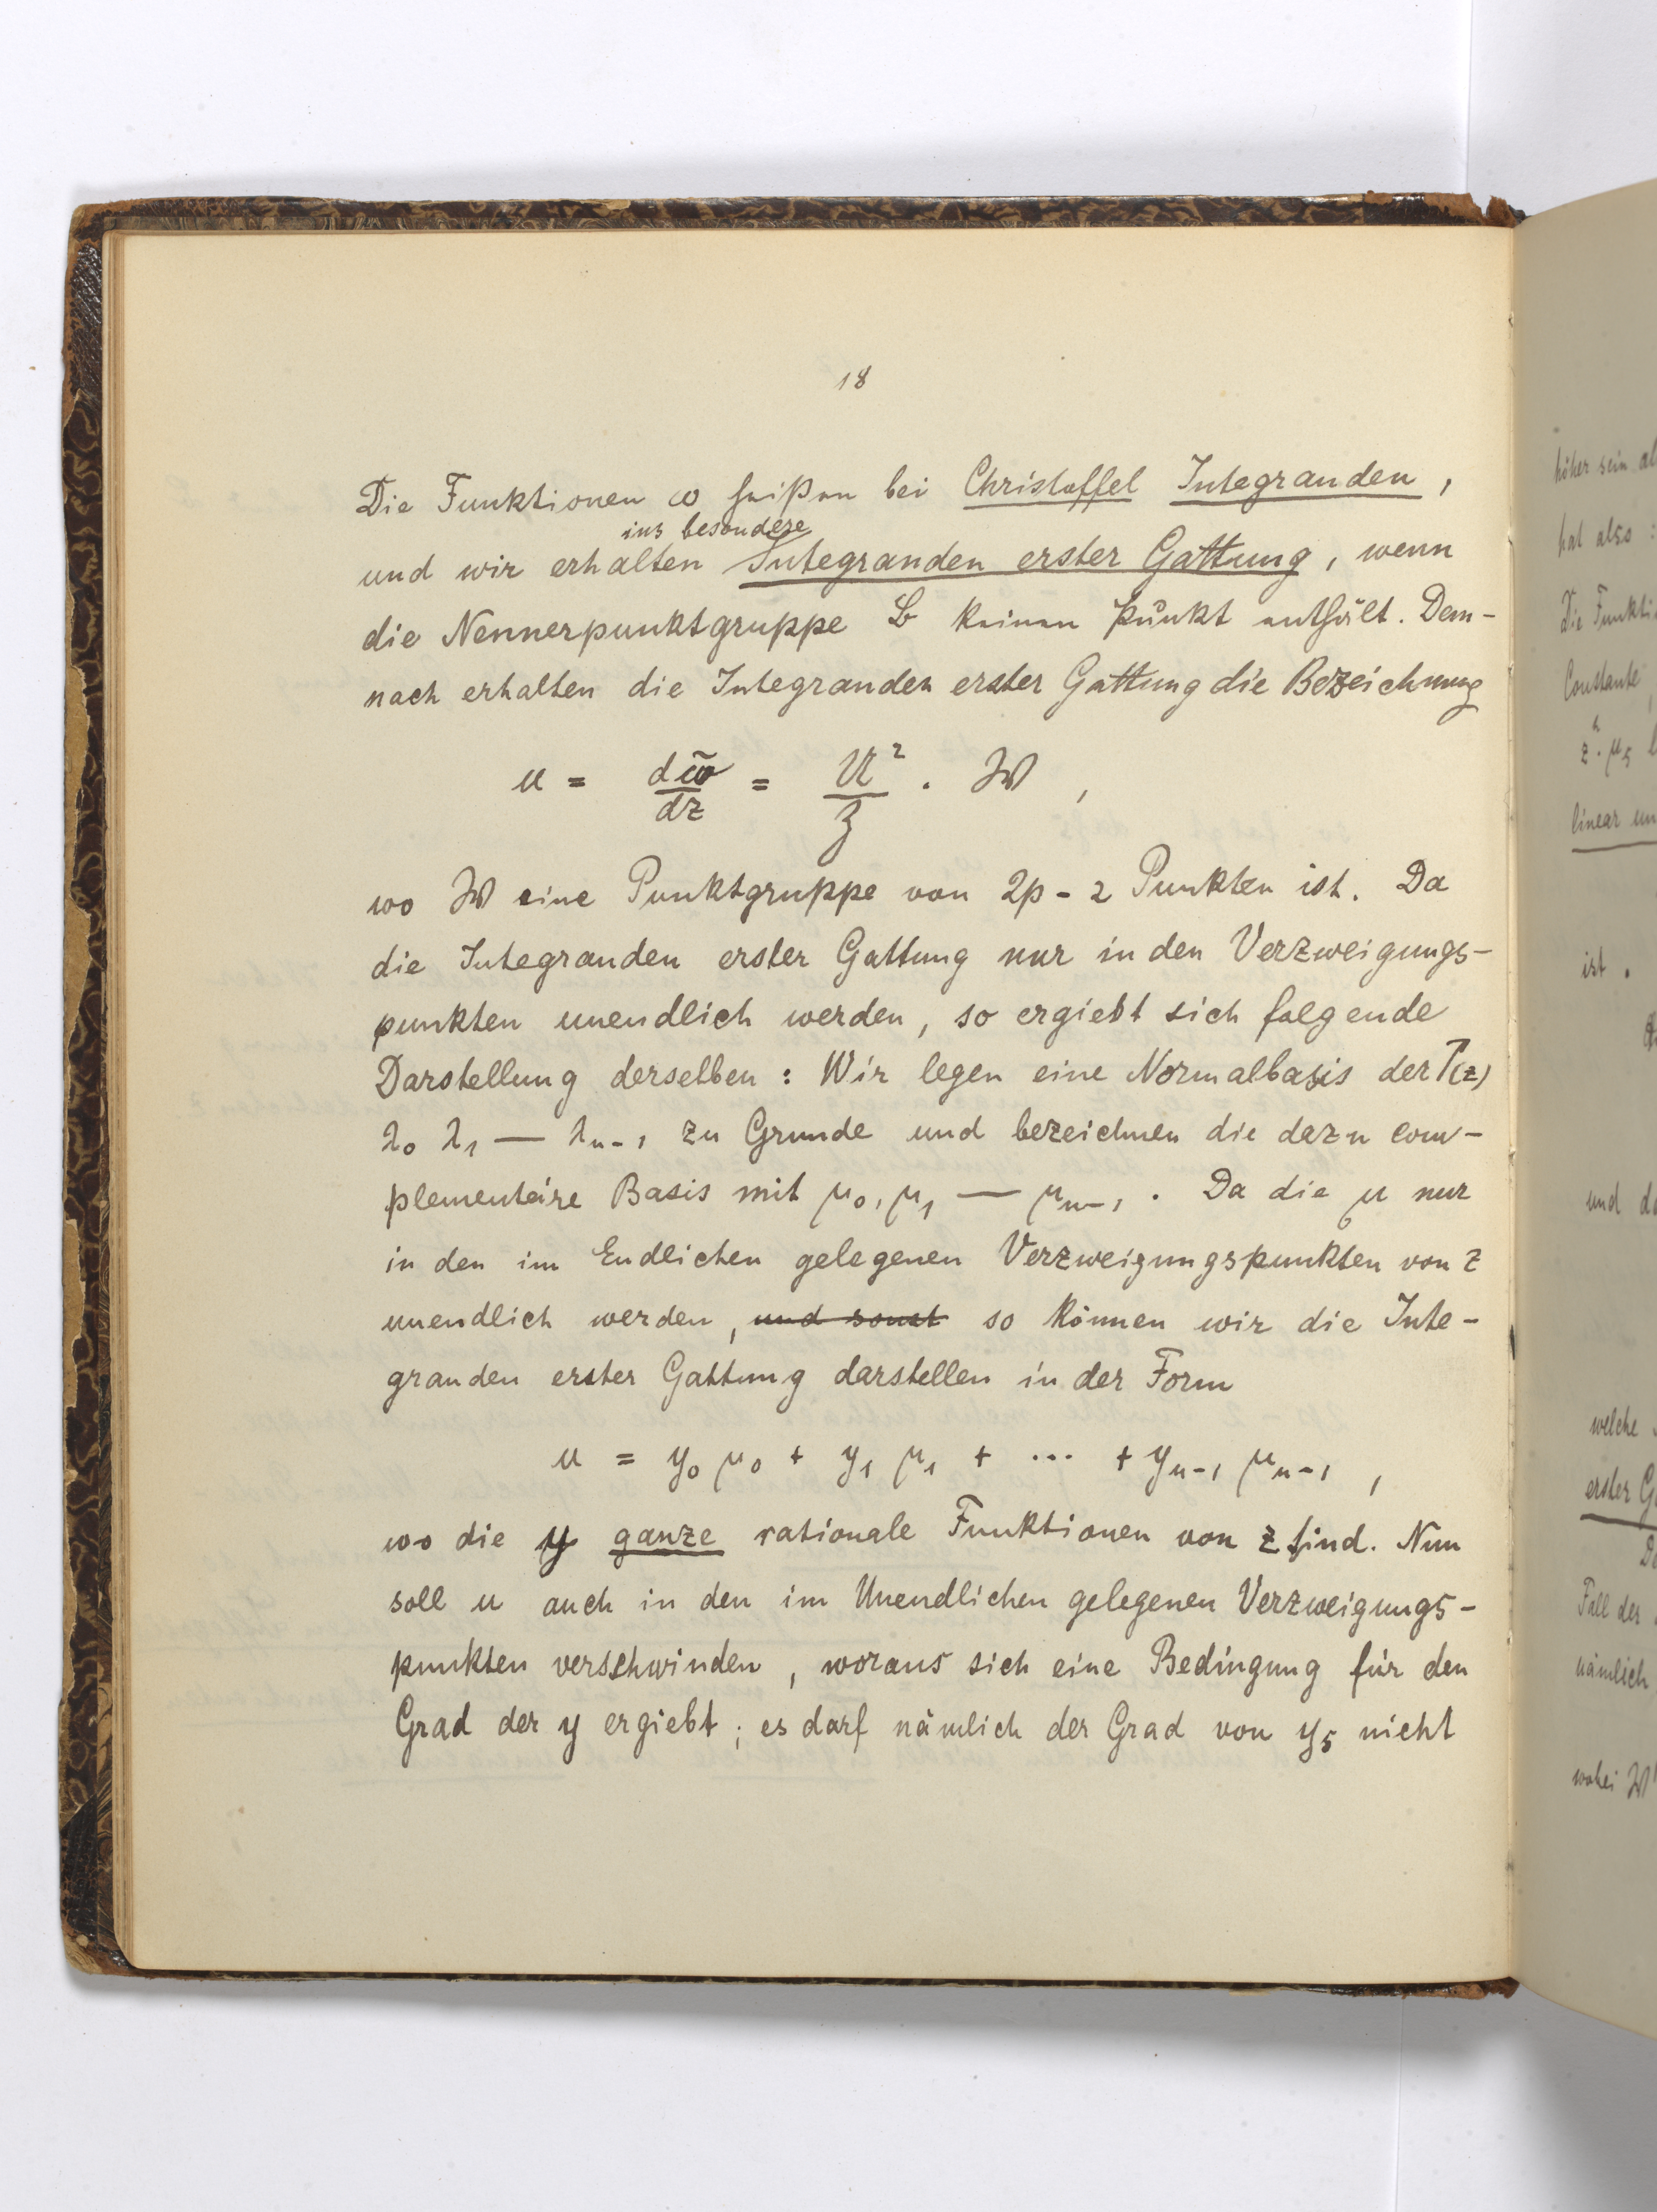 18
Die Funktionen ω heißen bei Christoffel Integranden,
ins besondere
und wir erhalten Integranden erster Gattung, wenn
die Nennerpunktgruppe keinen Punkt enthält. Dem-
nach erhalten die Integranden erster Gattung die Bezeichnung
u = dω̃/dz = U²/Z · W,
wo W eine Punktgruppe von 2p-2 Punkten ist. Da
die Integranden erster Gattung nur in den Verzweigungs-
punkten unendlich werden, so ergiebt sich folgende
Darstellung derselben: Wir legen eine Normalbasis der T(z)
λ₀ λ₁ — λₙ₋₁ zu Grunde und bezeichnen die dazu com-
plementäre Basis mit μ₀, μ₁ — μₙ₋₁. Da die μ nur
in den im Endlichen gelegenen Verzweigungspunkten von z
unendlich werden, und sonst so können wir die Inte-
granden erster Gattung darstellen in der Form
u = y₀ μ₀ + y₁ μ₁ + ... + yₙ₋₁ μₙ₋₁,
wo die y ganze rationale Funktionen von z sind. Nun
soll u auch in den im Unendlichen gelegenen Verzweigungs-
punkten verschwinden, woraus sich eine Bedingung für den
Grad der y ergiebt; es darf nämlich der Grad von y₅ nicht
höher sein
hat also:
Die
Constante
linear
ist.
und
welche
erster
Fall der
nämlich
wobei W